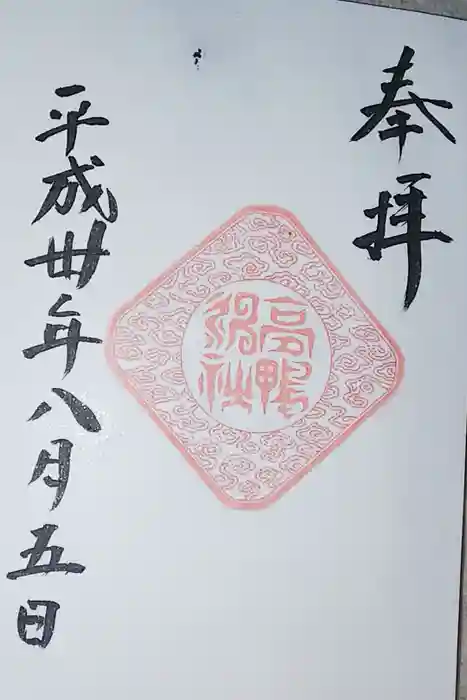 奉拝
高鴨
神社
平成卅年八月五日